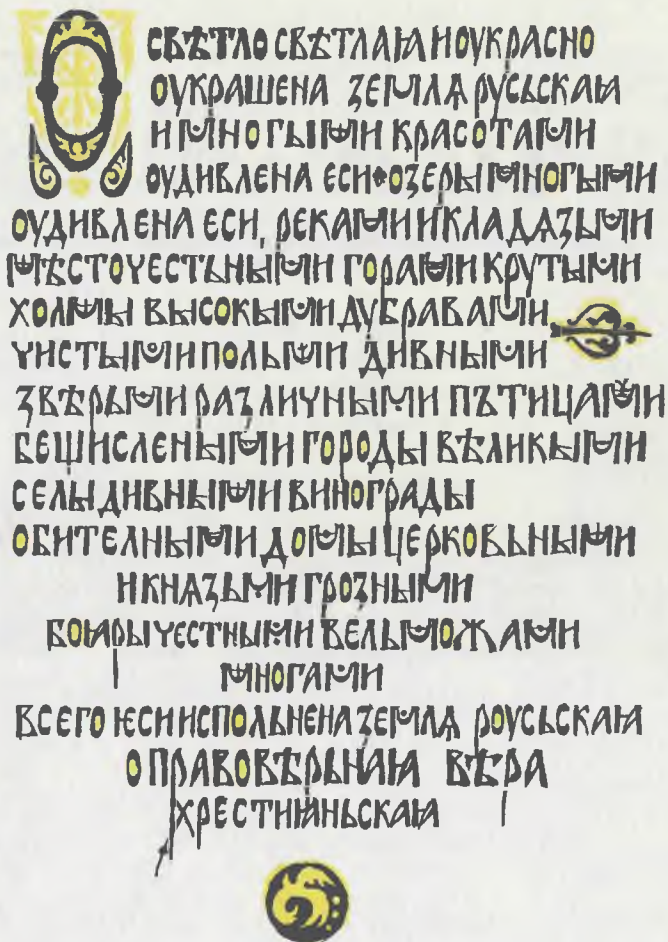 О СВѢТЛО СВѢТЛАꙖ И ОУКРАСНО
ОУКРАШЕНА ЗЕМЛѦ РУСЬСКАꙖ
И МНОГЫМИ КРАСОТАМИ
ОУДИВЛЕНА ЕСИ•ОЗЕРЫ МНОГЫМИ
ОУДИВЛЕНА ЕСИ, РЕКАМИ И КЛАДѦЗЫМИ
МѢСТОЧЕСТЬНЫМИ ГОРАМИ КРУТЫМИ
ХОЛМЫ ВЫСОКЫМИ ДУБРАВАМИ
ЧИСТЫМИ ПОЛЬМИ ДИВНЫМИ
ЗВѢРЬМИ РАЗЛИЧНЫМИ ПЪТИЦАМИ
БЕЩИСЛЕНЫМИ ГОРОДЫ ВѢЛИКЫМИ
СЕЛЫ ДИВНЫМИ ВИНОГРАДЫ
ОБИТЕЛНЫМИ ДОМЫ ЦЕРКОВЬНЫМИ
И КНАЗЬМИ ГРОЗНЫМИ
БОꙖРЫ ЧЕСТНЫМИ ВЕЛЬМОЖАМИ
МНОГАМИ
ВСЕГО ѤСИ ИСПОЛЬНЕНА ЗЕМЛѦ РОУСЬСКАꙖ
О ПРАВОВѢРЬНАꙖ ВѢРА
ХРЕСТИꙖНЬСКАꙖ